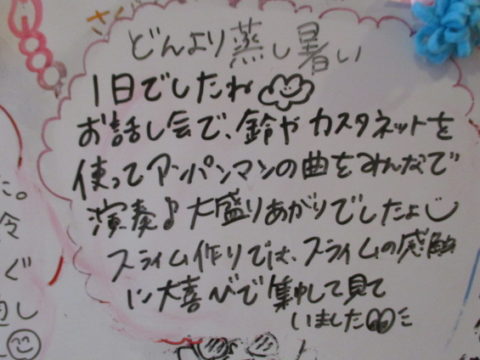 さく
どんより蒸し暑い
1日でしたね
お話し会で、鈴や カスタネットを
使ってアンパンマンの曲をみんなで
演奏♪大盛りあがりでしたよ
スライム作りでは、スライムの感触
に大喜びで集中して見て
いました